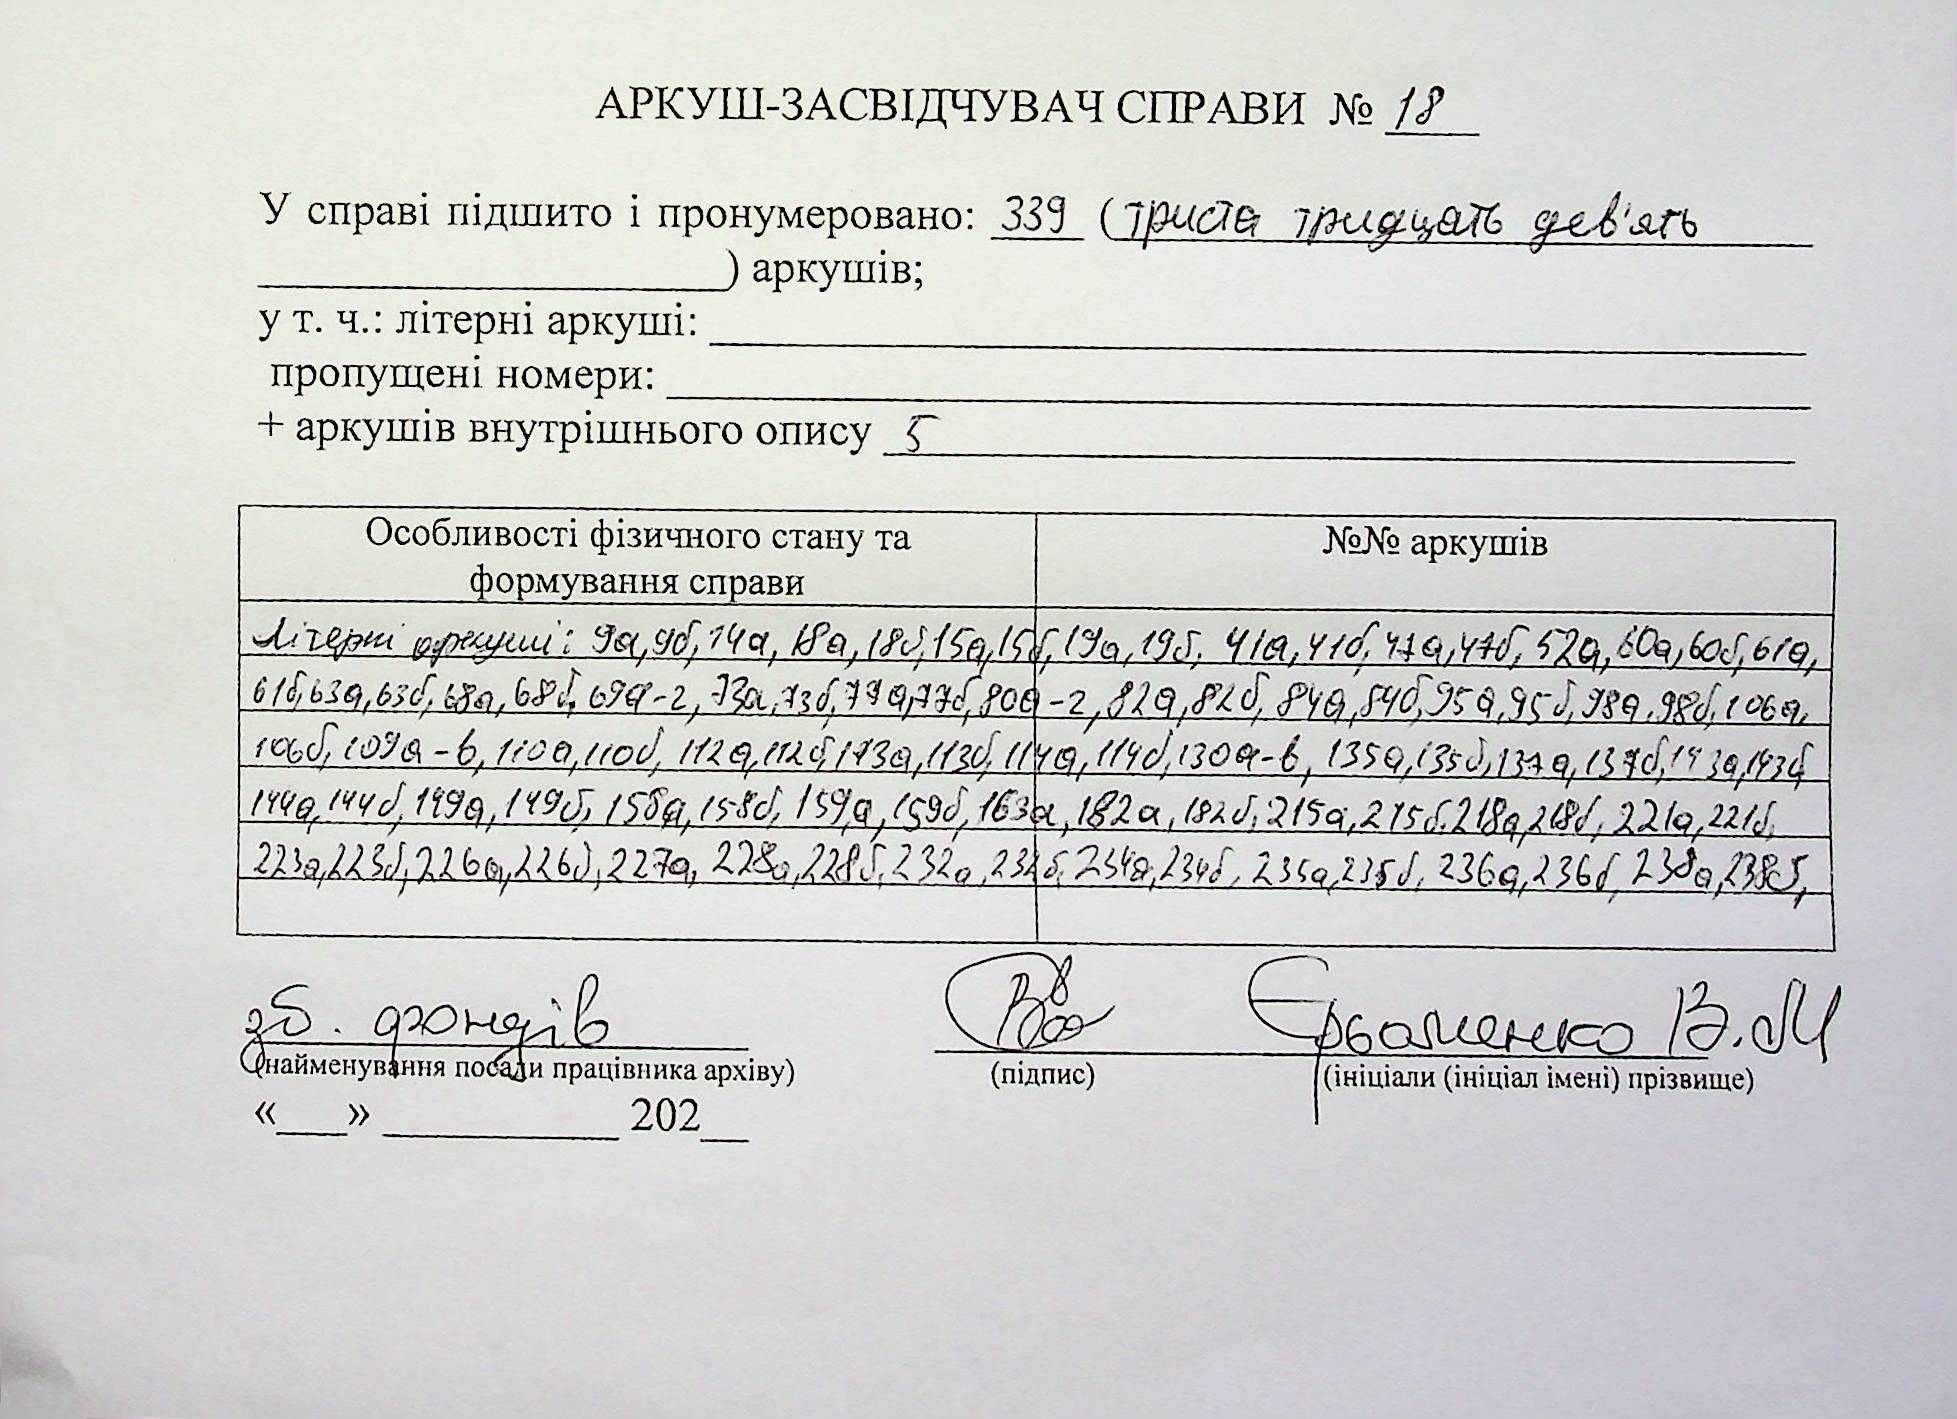 АРКУШ-ЗАСВІДЧУВАЧ СПРАВИ № 18
У справі підшито і пронумеровано: 339 (триста тридцять дев'ять
) аркушів;
у т. ч.: літерні аркуші:
пропущені номери:
+ аркушів внутрішнього опису 5
Особливості фізичного стану та
формування справи
№№ аркушів
Літерні аркуші: 9а, 9б, 14а, 18а, 18б, 15а, 15б, 19а, 19б, 41а, 41б, 47а, 47б, 52а, 60а, 60б, 61а,
61б, 63а, 63б, 68а, 68б, 69а-г, 73а, 73б, 77а, 77б, 80а-г, 82а, 82б, 84а, 84б, 95а, 95б, 98а, 98б, 106а,
106б, 109а-в, 110а, 110б, 112а, 112б, 113а, 113б, 114а, 114б, 130а-в, 135а, 135б, 137а, 137б, 143а, 143б
144а, 144б, 149а, 149б, 158а, 158б, 159а, 159б, 163а, 182а, 182б, 215а, 215б, 218а, 218б, 221а, 221б,
223а, 223б, 226а, 226б, 227а, 228а, 228б, 232а, 232б, 234а, 234б, 235а, 235б, 236а, 236б, 238а, 238б,
зб. фондів
В.М
(найменування посади працівника архіву) (підпис) (ініціали (ініціал імені) прізвище)
«___» __________ 202__